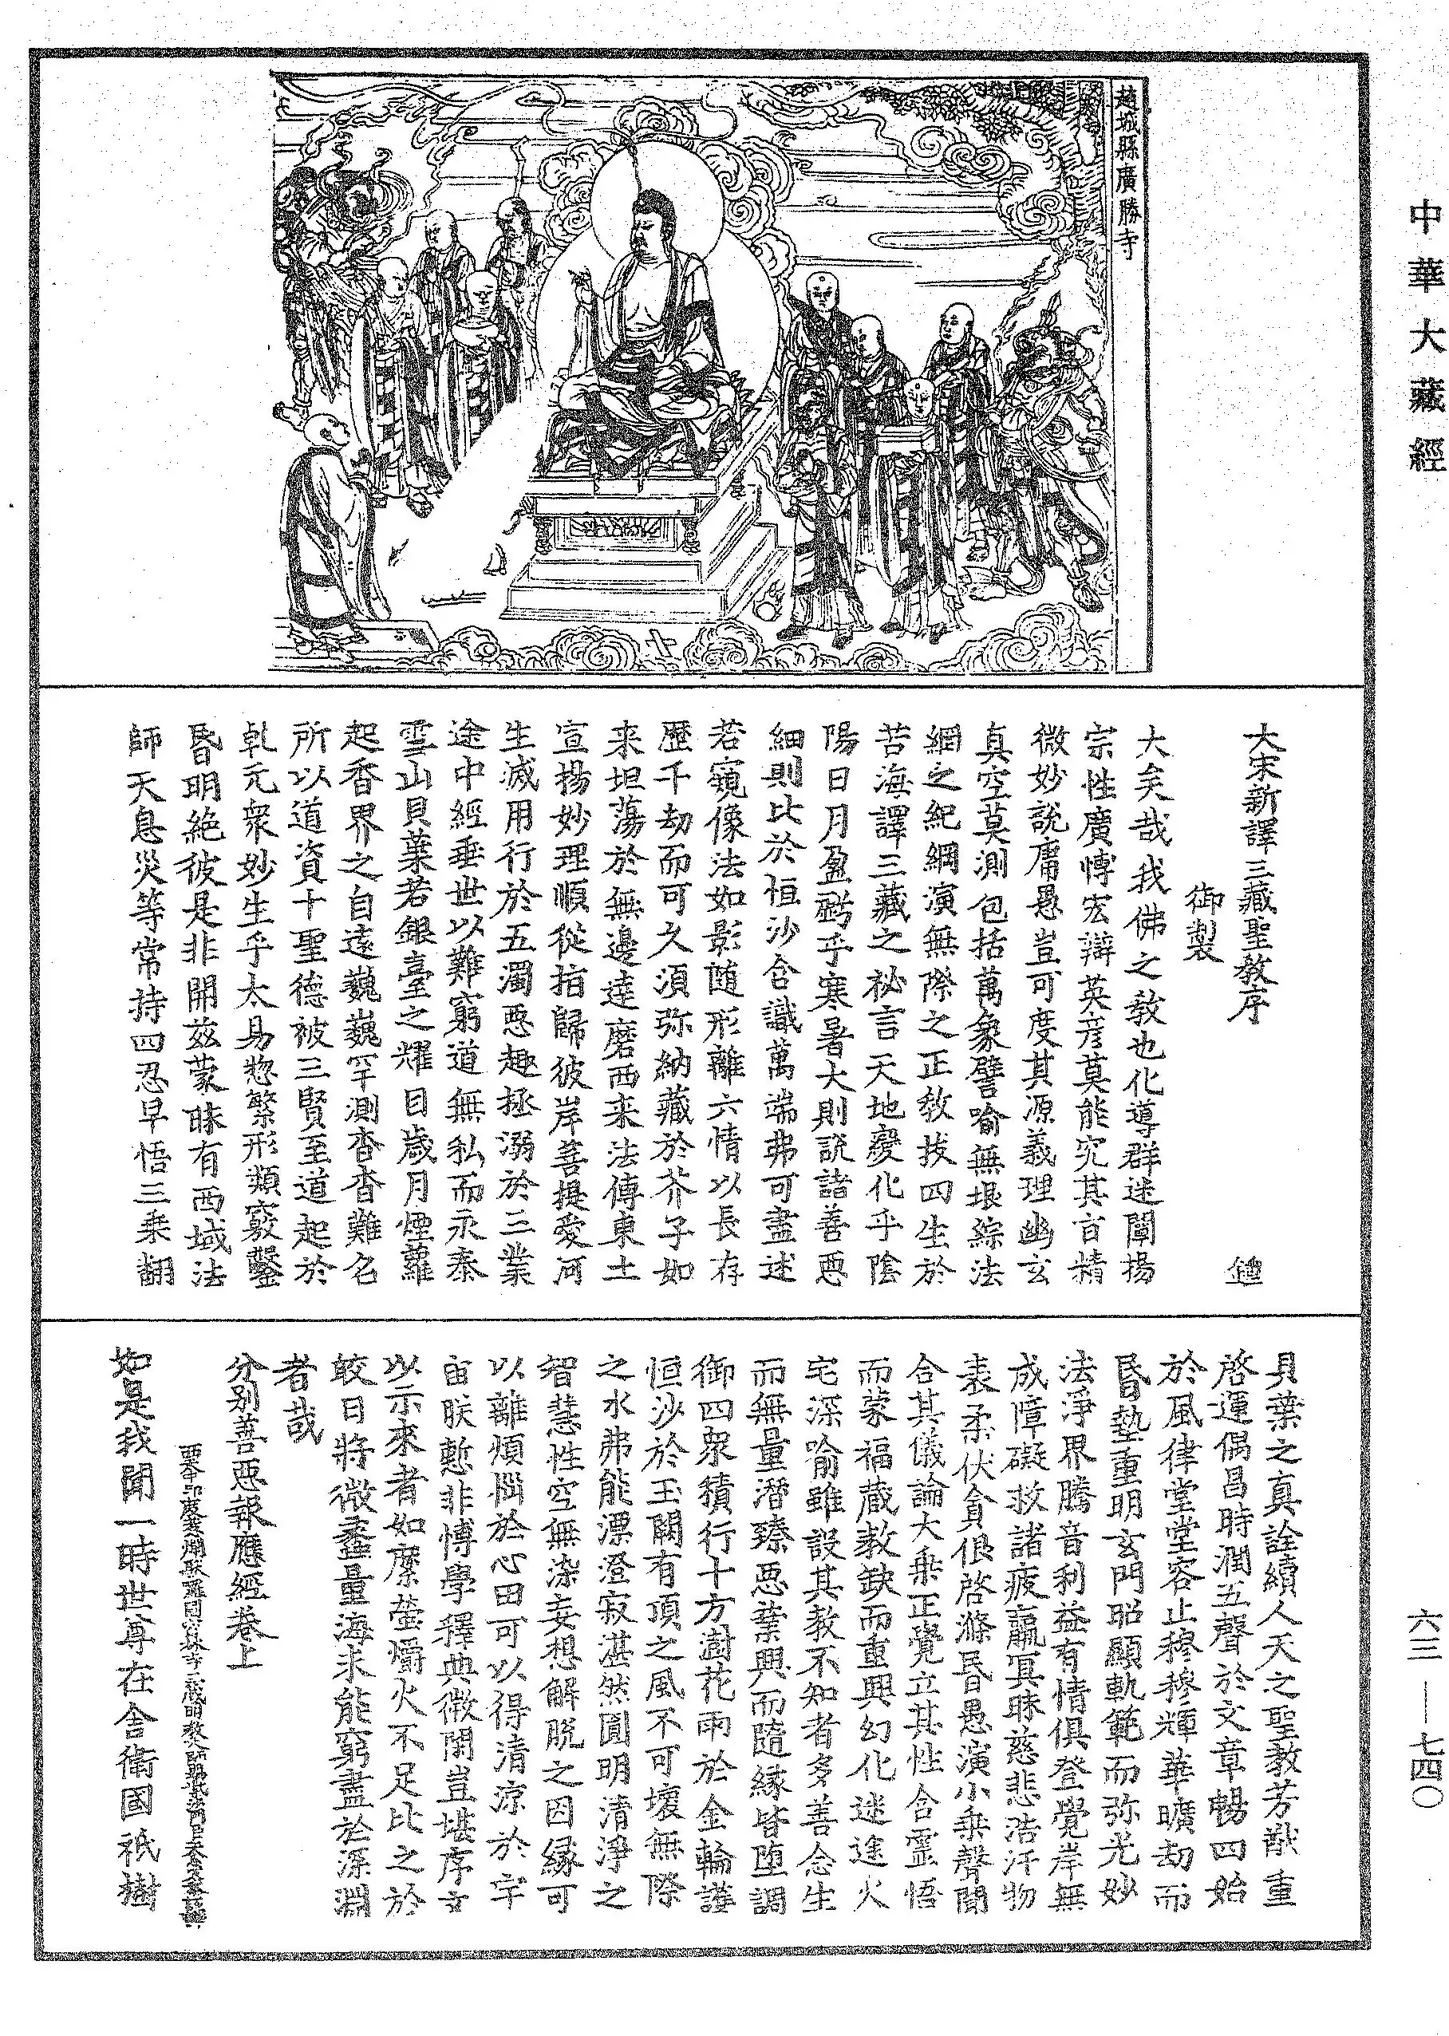 中華大藏經
趙城縣廣勝寺
大宋新譯三藏聖教序
御製
大矣哉我佛之教也化導群迷闡揚
宗性廣博宏辯英彦莫能究其旨精
微妙説庸愚豈可度其源義理幽玄
真空莫測包括萬象譬喻無垠綜法
網之紀綱演無際之正教拔四生於
苦海譯三藏之祕言天地變化乎陰
陽日月盈虧乎寒暑大則説諸善惡
細則比於恒沙含識萬端弗可盡述
若窺像法如影随形離六情以長存
歷千劫而可久須弥納藏於芥子如
来坦蕩於無邊達磨西来法傳東土
宣揚妙理順從指歸彼岸菩提愛河
生滅用行於五濁惡趣拯溺於三業
途中經垂世以難窮道無私而永泰
雪山貝葉若銀臺之耀目歲月煙蘿
起香界之自遠巍巍罕測杳杳難名
所以道資十聖德被三賢至道起於
乹元衆妙生乎太易惣繁形類竅鑿
昏明絶彼是非開兹蒙昧有西域法
師天息災等常持四忍早悟三乗翻
貝葉之真詮續人天之聖教芳猷重
啓運偶昌時潤五聲於文章暢四始
於風律堂堂容止穆穆輝華曠劫而
昏墊重明玄門昭顯軌範而弥光妙
法淨界騰音利益有情俱登覺岸無
成障礙救諸疲羸冥昧慈悲浩汗物
表柔伏貪佷啓滌昏愚演小乗聲聞
合其儀論大乗正覺立其性含靈悟
而蒙福藏教缺而重興幻化迷途火
宅深喻雖設其教不知者多善念生
而無量潛臻惡業興而隨緣皆墮調
御四衆積行十方澍花雨於金輪護
恒沙於玉闕有頂之風不可壞無際
之水弗能漂澄寂湛然圓明清淨之
智慧性空無染妄想解脱之因緣可
以離煩惱於心田可以得清涼於宇
宙朕慙非博學釋典微閑豈堪序文
以示來者如縻螢爝火不足比之於
皎日將微蠡量海未能窮盡於深淵
者哉
分别善惡報應經卷上
如是我聞一時世尊在舍衛國祇樹
六三——七四〇